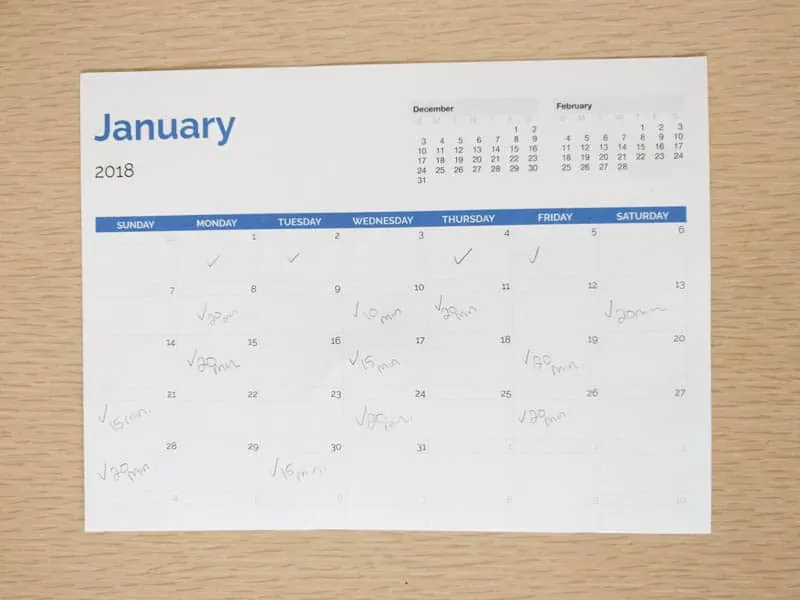 January
2018
December
1 2
3 4 5 6 7 8 9
10 11 12 13 14 15 16
17 18 19 20 21 22 23
24 25 26 27 28 29 30
31
February
S M T W T F S
1 2 3
4 5 6 7 8 9 10
11 12 13 14 15 16 17
18 19 20 21 22 23 24
25 26 27 28
SUNDAY MONDAY TUESDAY WEDNESDAY THURSDAY FRIDAY SATURDAY
1 2 3 4 5 6
✓ ✓ ✓ ✓
7 8 9 10 11 12 13
✓20 ✓10 min ✓20min ✓20min
14 15 16 17 18 19 20
✓20min ✓15min ✓20min.
21 22 23 24 25 26 27
✓15min. ✓20min. ✓20min
28 29 30 31
✓20min ✓15min.